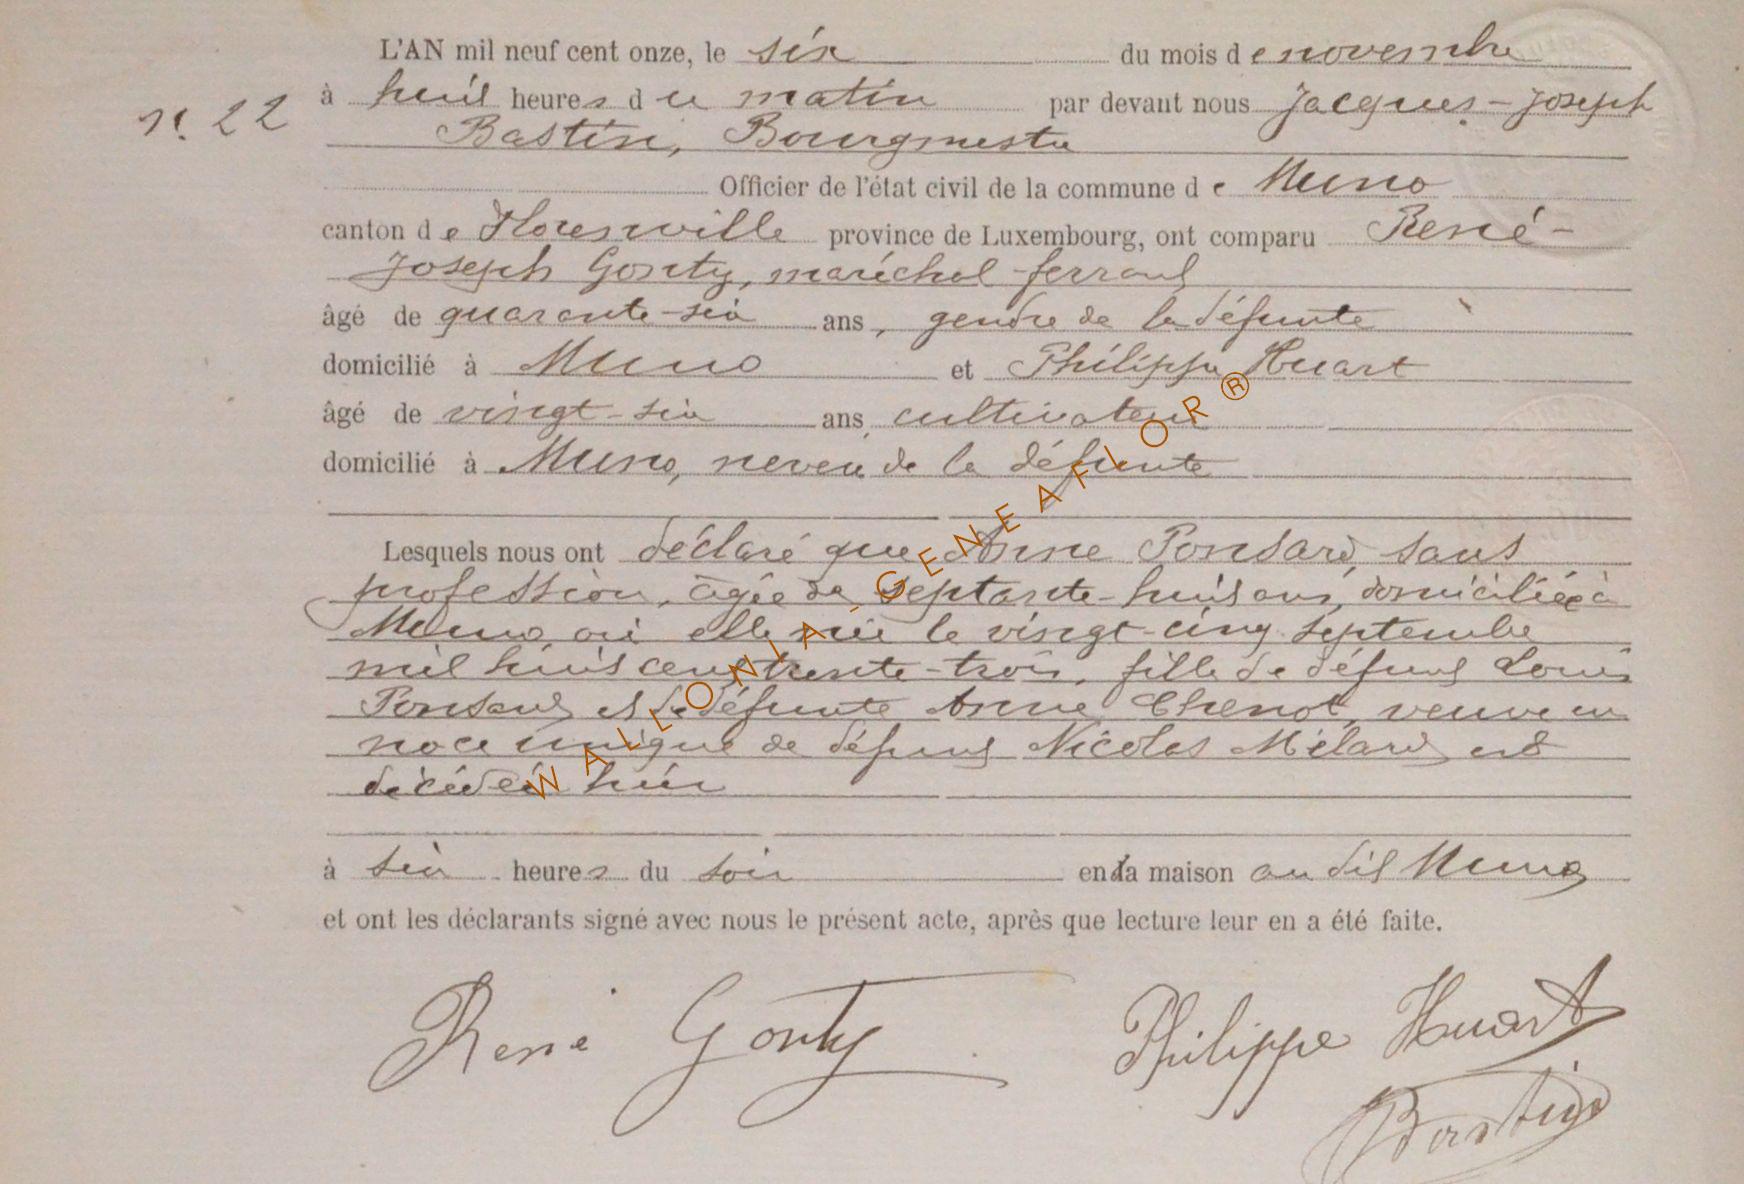 L'AN mil neuf cent onze, le six du mois de novembre
n°. 22
à huit heures du matin par devant nous Jacques-Joseph
Bastin, Bourgmestre
Officier de l'état civil de la commune de Muno
canton de Florenville province de Luxembourg, ont comparu René-
Joseph Gonty, maréchal-ferrant
âgé de quarante-six ans, gendre de la défunte
domicilié à Muno et Philippe Huart
âgé de vingt-six ans, cultivateur
domicilié à Muno, neveu de la défunte
Lesquels nous ont déclaré que Anne Ponsard, sans
profession, âgée de septante-huit ans, domiciliée à
Muno où elle née le vingt-cinq septembre
mil huit cent trente-trois, fille de défunt Louis
Ponsard et de défunte Anne Chenot, veuve en
noce unique de défunt Nicolas Mélard est
décédée hier
à six heures du soir en sa maison au dit Muno
et ont les déclarants signé avec nous le présent acte, après que lecture leur en a été faite.
René Gonty Philippe Huart
Bastin
WALLONIA-GENEAFLOR®